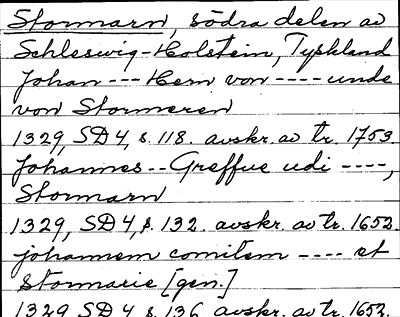 Stormarn, södra delen av
Schleswig-Holstein, Tyskland
Johan --- Hern von ---- unde
von Stormeren
1329, SD 4, s. 118. avskr. av tr. 1753.
Johannes -- Greffue udi ----,
Stormarn
1329, SD 4, s. 132. avskr. av tr. 1652.
johannem comitem ---- et
stormarie [gen.]
1329 SD 4, s. 136 avskr. av tr. 1652.